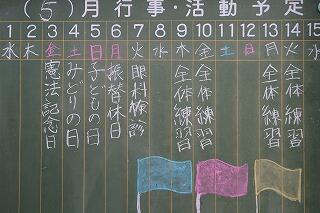 (5)月行事・活動予定
1 2 3 4 5 6 7 8 9 10 11 12 13 14 15
水 木 金 土 日 月 火 水 木 金 土 日 月 火 水
憲法記念日
みどりの日
子どもの日
振替休日
眼科検診
全体練習
全体練習
全体練習
全体練習